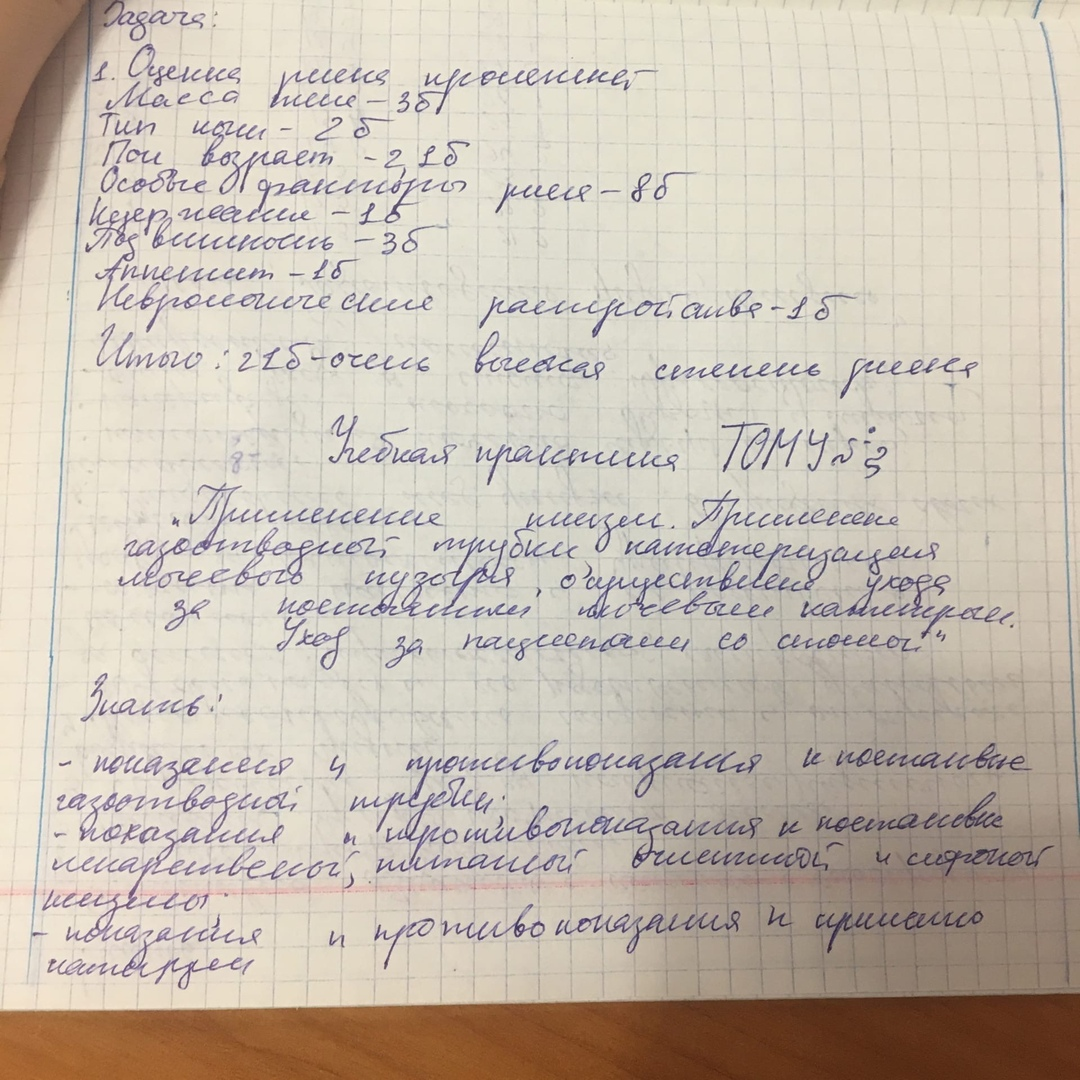 Задача:
1. Оценка риска пролежней
Масса тела - 3б
Тип кожи - 2б
Пол возраст - 2,1б
Особые факторы риска - 8б
Недержания - 1б
Подвижность - 3б
Аппетит - 1б
Неврологические расстройства - 1б
Итого: 21б - очень высокая степень риска
Учебная практика ТОМУ
„Применение клизм. Применение
газоотводной трубки, катетеризация
мочевого пузыря, осуществление ухода
за постоянным мочевым катетером.
Уход за пациентами со стомой"
Знать:
- показания и противопоказания к постановке
газоотводной трубки;
- показания и противопоказания к постановке
лекарственной, питательной очистительной и сифонной
клизмы;
- показания и противопоказания к
катетеризации